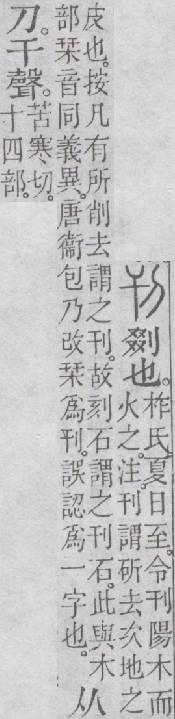 刊 剟也。
柞氏。夏日至。令刊陽木而
火之。注。刊謂斫去次地之
皮也。按凡有所削去謂之刊。故刻石謂之刊石。此與木
部栞音同義異。唐衞包乃改栞爲刊。誤認爲一字也。
从
刀。干聲。
苦寒切。
十四部。